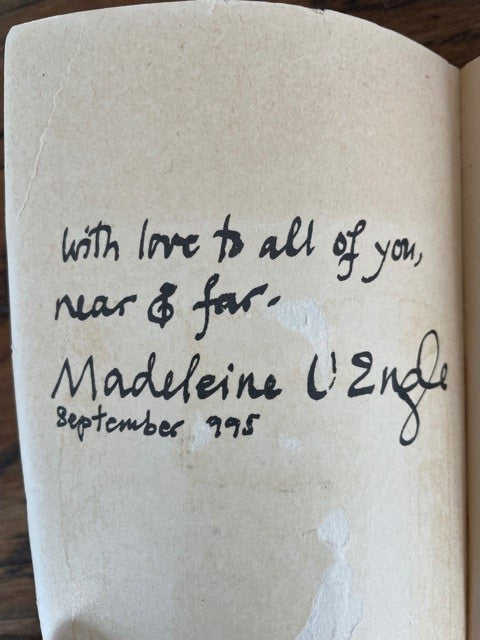 with love to all of you,
near & far.
Madeleine L'Engle
September 995